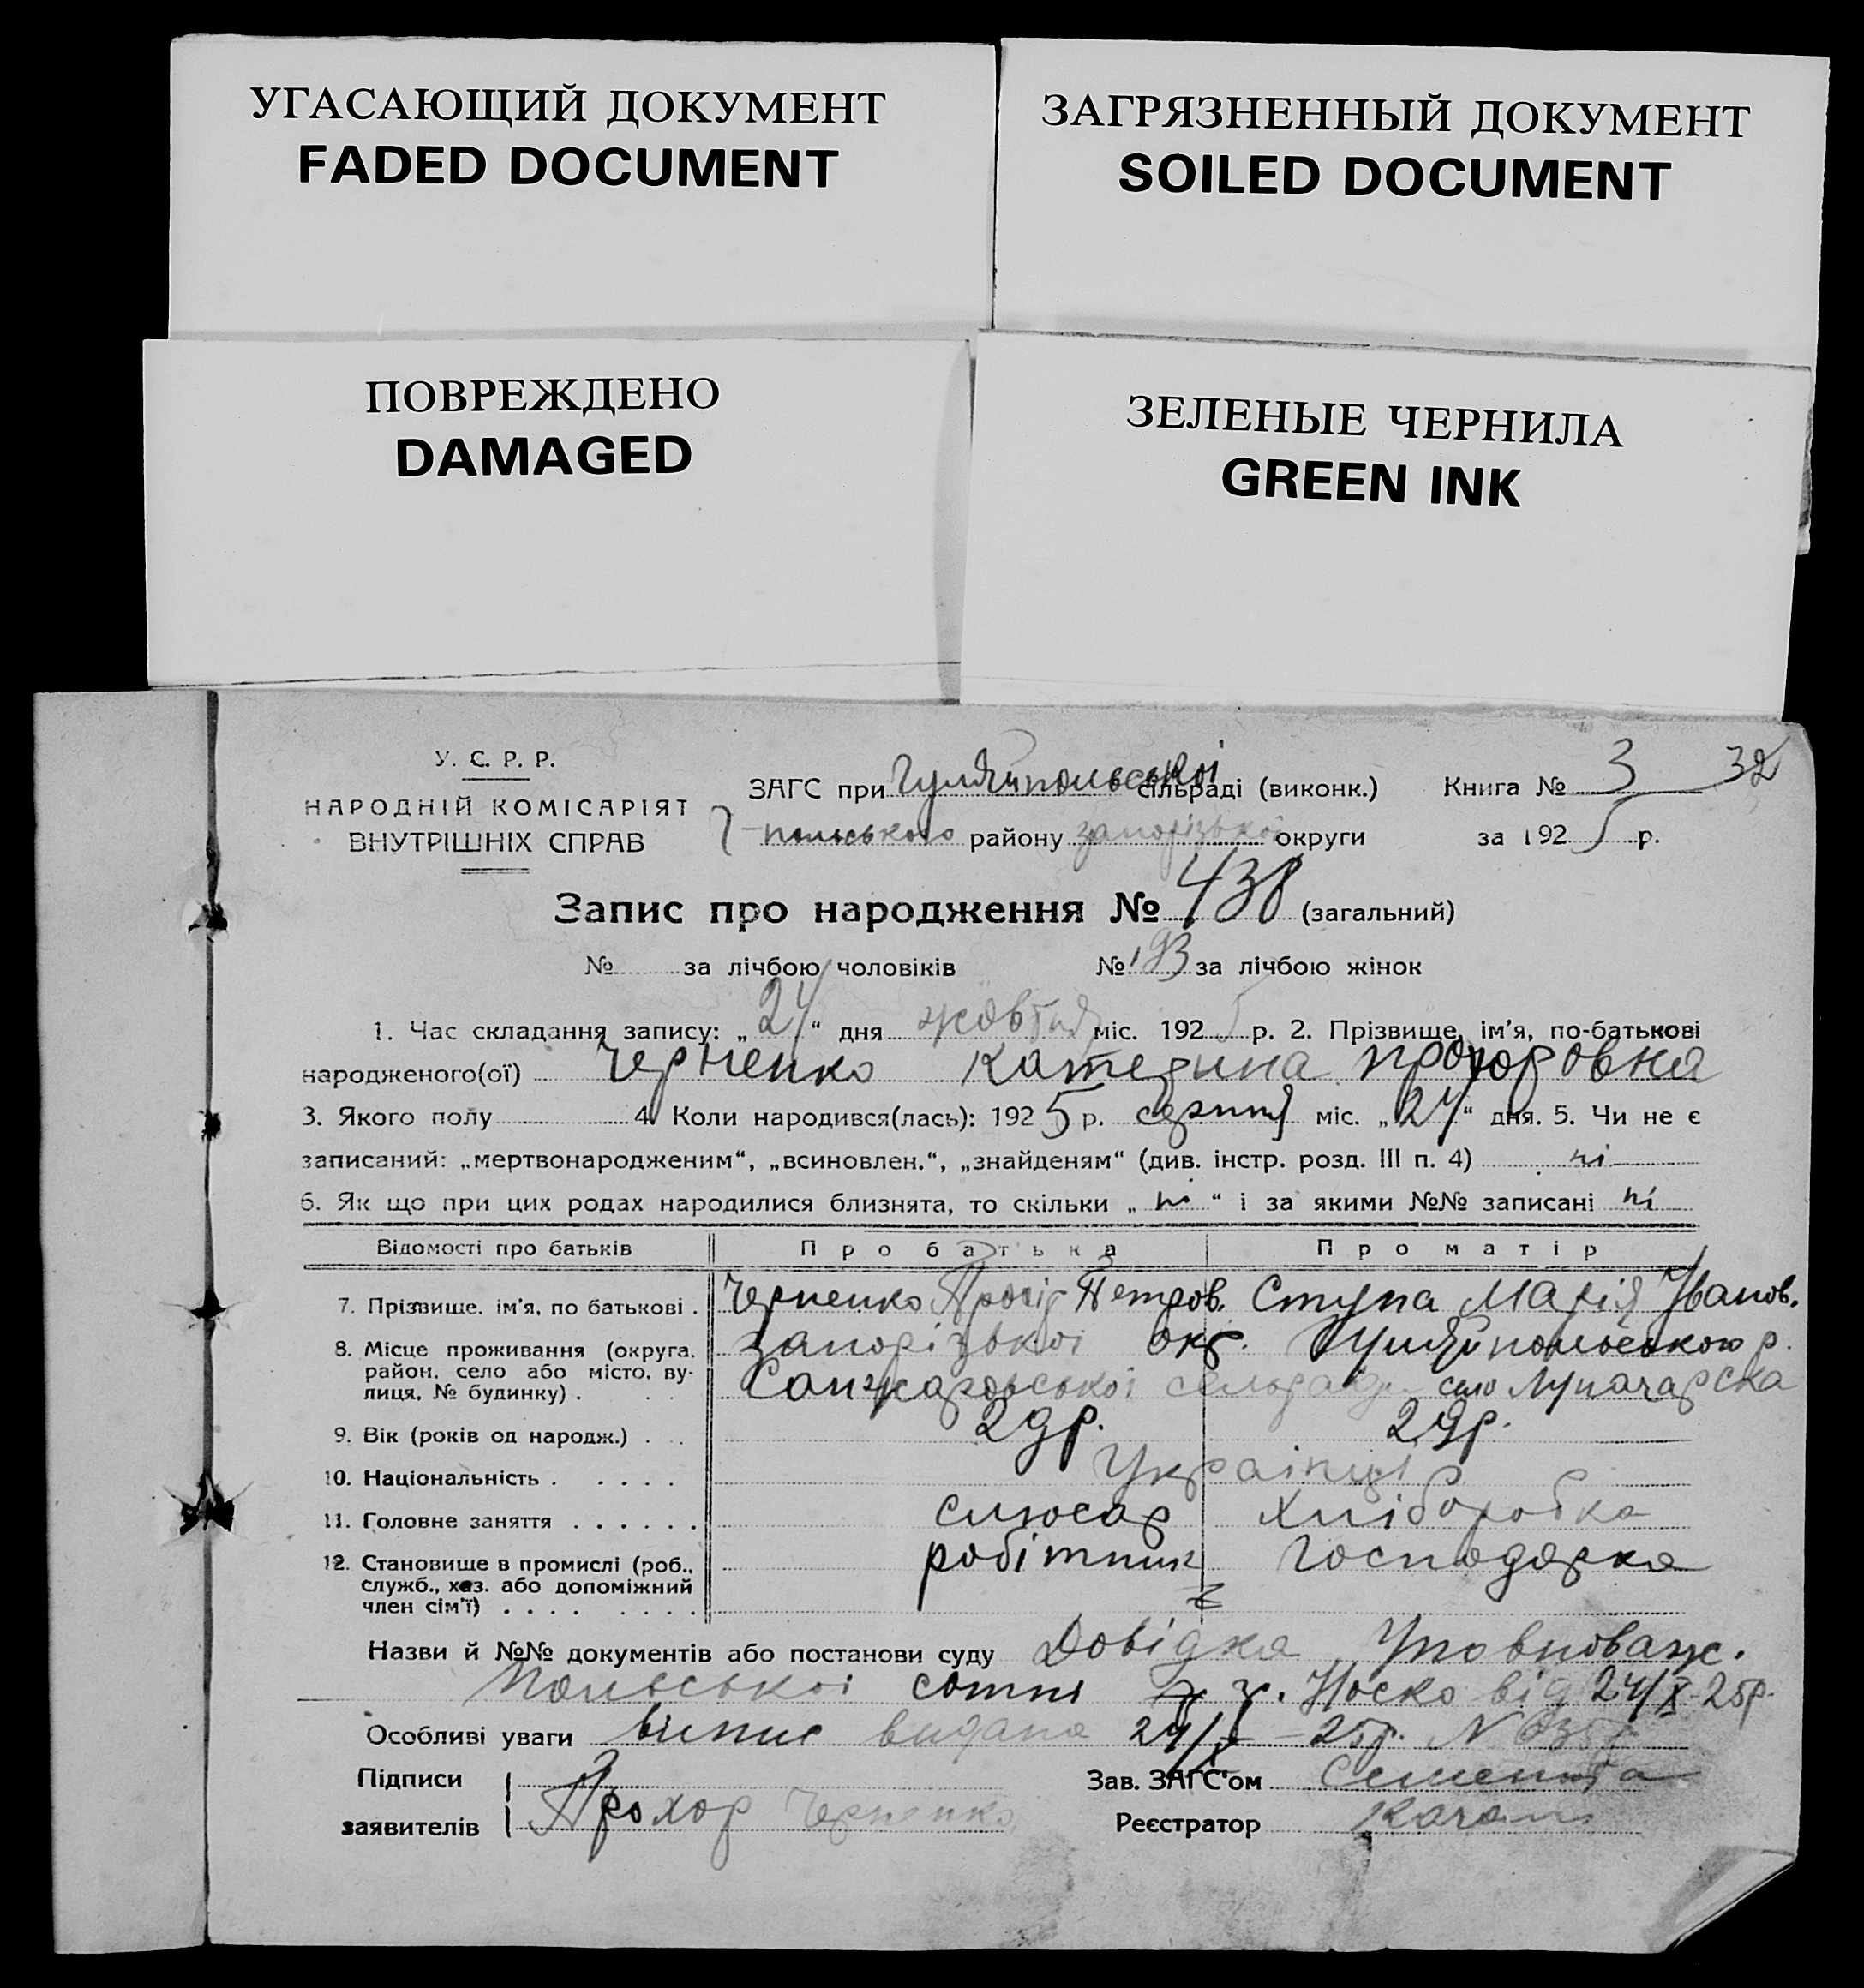 УГАСАЮЩИЙ ДОКУМЕНТ
FADED DOCUMENT
ЗАГРЯЗНЕННЫЙ ДОКУМЕНТ
SOILED DOCUMENT
ПОВРЕЖДЕНО
DAMAGED
ЗЕЛЕНЫЕ ЧЕРНИЛА
GREEN INK
У. С. Р. Р.
НАРОДНІЙ КОМІСАРІЯТ
ВНУТРІШНІХ СПРАВ
ЗАГС при Гуляйпольської сільраді (виконк.)
Г-польського району запорізької округи
Книга № 3 32
за 1925 р.
Запис про народження № 438 (загальний)
№ за лічбою чоловіків № 193 за лічбою жінок
1. Час складання запису: „24“ дня жовтня міс. 1925 р. 2. Прізвище, ім’я, по-батькові
народженого(ої) Черненко Катерина Прохоровна
3. Якого полу 4. Коли народився(лась): 1925 р. серпня міс. „24“ дня. 5. Чи не є
записаний: „мертвонародженим“, „всиновлен.“, „знайденям“ (див. інстр. розд. III п. 4) ні
6. Як що при цих родах народилися близнята, то скільки „ні“ і за якими №№ записані ні
Відомості про батьків Про батька Про матір
7. Прізвище, ім’я, по батькові . Черненко Прохір Петров. Ступа Марія Іванов.
8. Місце проживання (округа, район, село або місто, вулиця, № будинку) . запорізької окр. Гуляйпольського р.
Санжаровської сельради село Луначарска
9. Вік (років од народж.) . . 29р. 29р.
10. Національність . . . . . Українці
11. Головне заняття . . . . . . слюсар хліборобка
12. Становище в промислі (роб., служб., хаз. або допоміжний член сім’ї) . . . . робітник господарка
Назви й №№ документів або постанови суду Довідка Уповноваж.
Польської сотні т. Носко від 24/X-25р.
Особливі уваги випис видана 24/X-25р. N
Підписи заявителів Прохор Черненко
Зав. ЗАГС’ом
Реєстратор